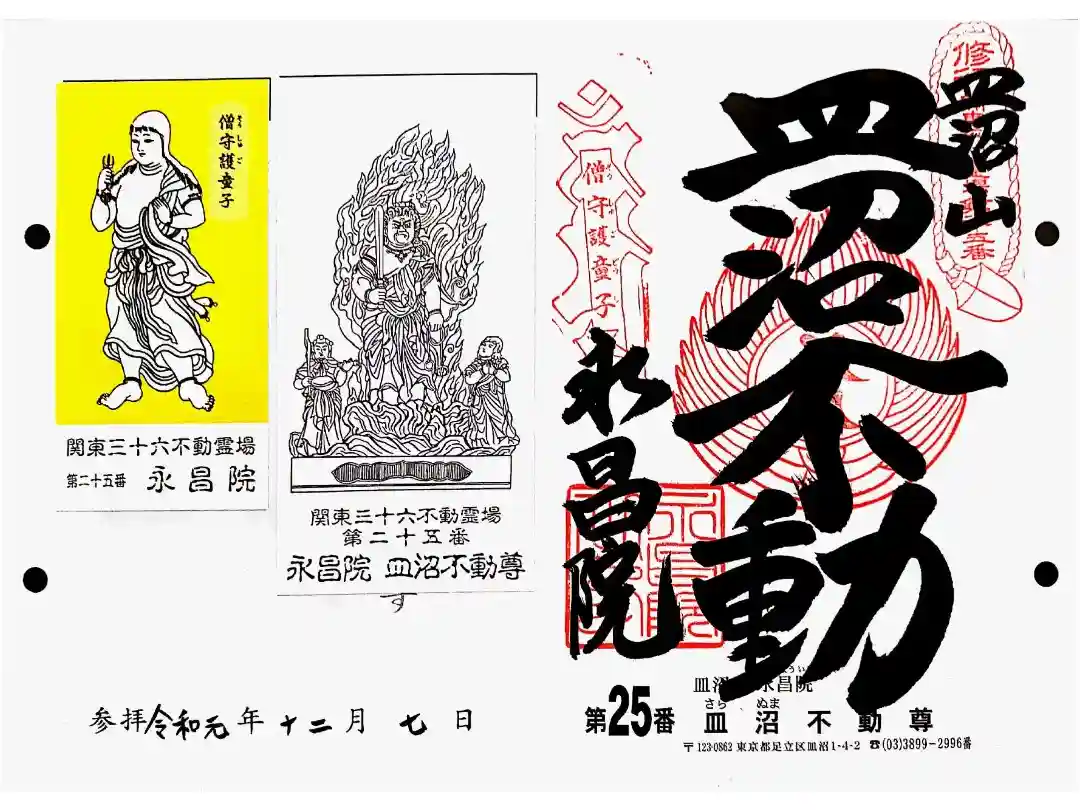 皿沼山
皿沼不動
永昌院
僧守護童子
そう しゅ ご
僧守護童子
関東三十六不動霊場
第二十五番 永昌院
関東三十六不動霊場
第二十五番
永昌院 皿沼不動尊
参拝令和元年十二月七日
さら ぬま
第25番 皿沼不動尊
〒123-0862 東京都足立区皿沼1-4-2 ☎(03)3899-2996番